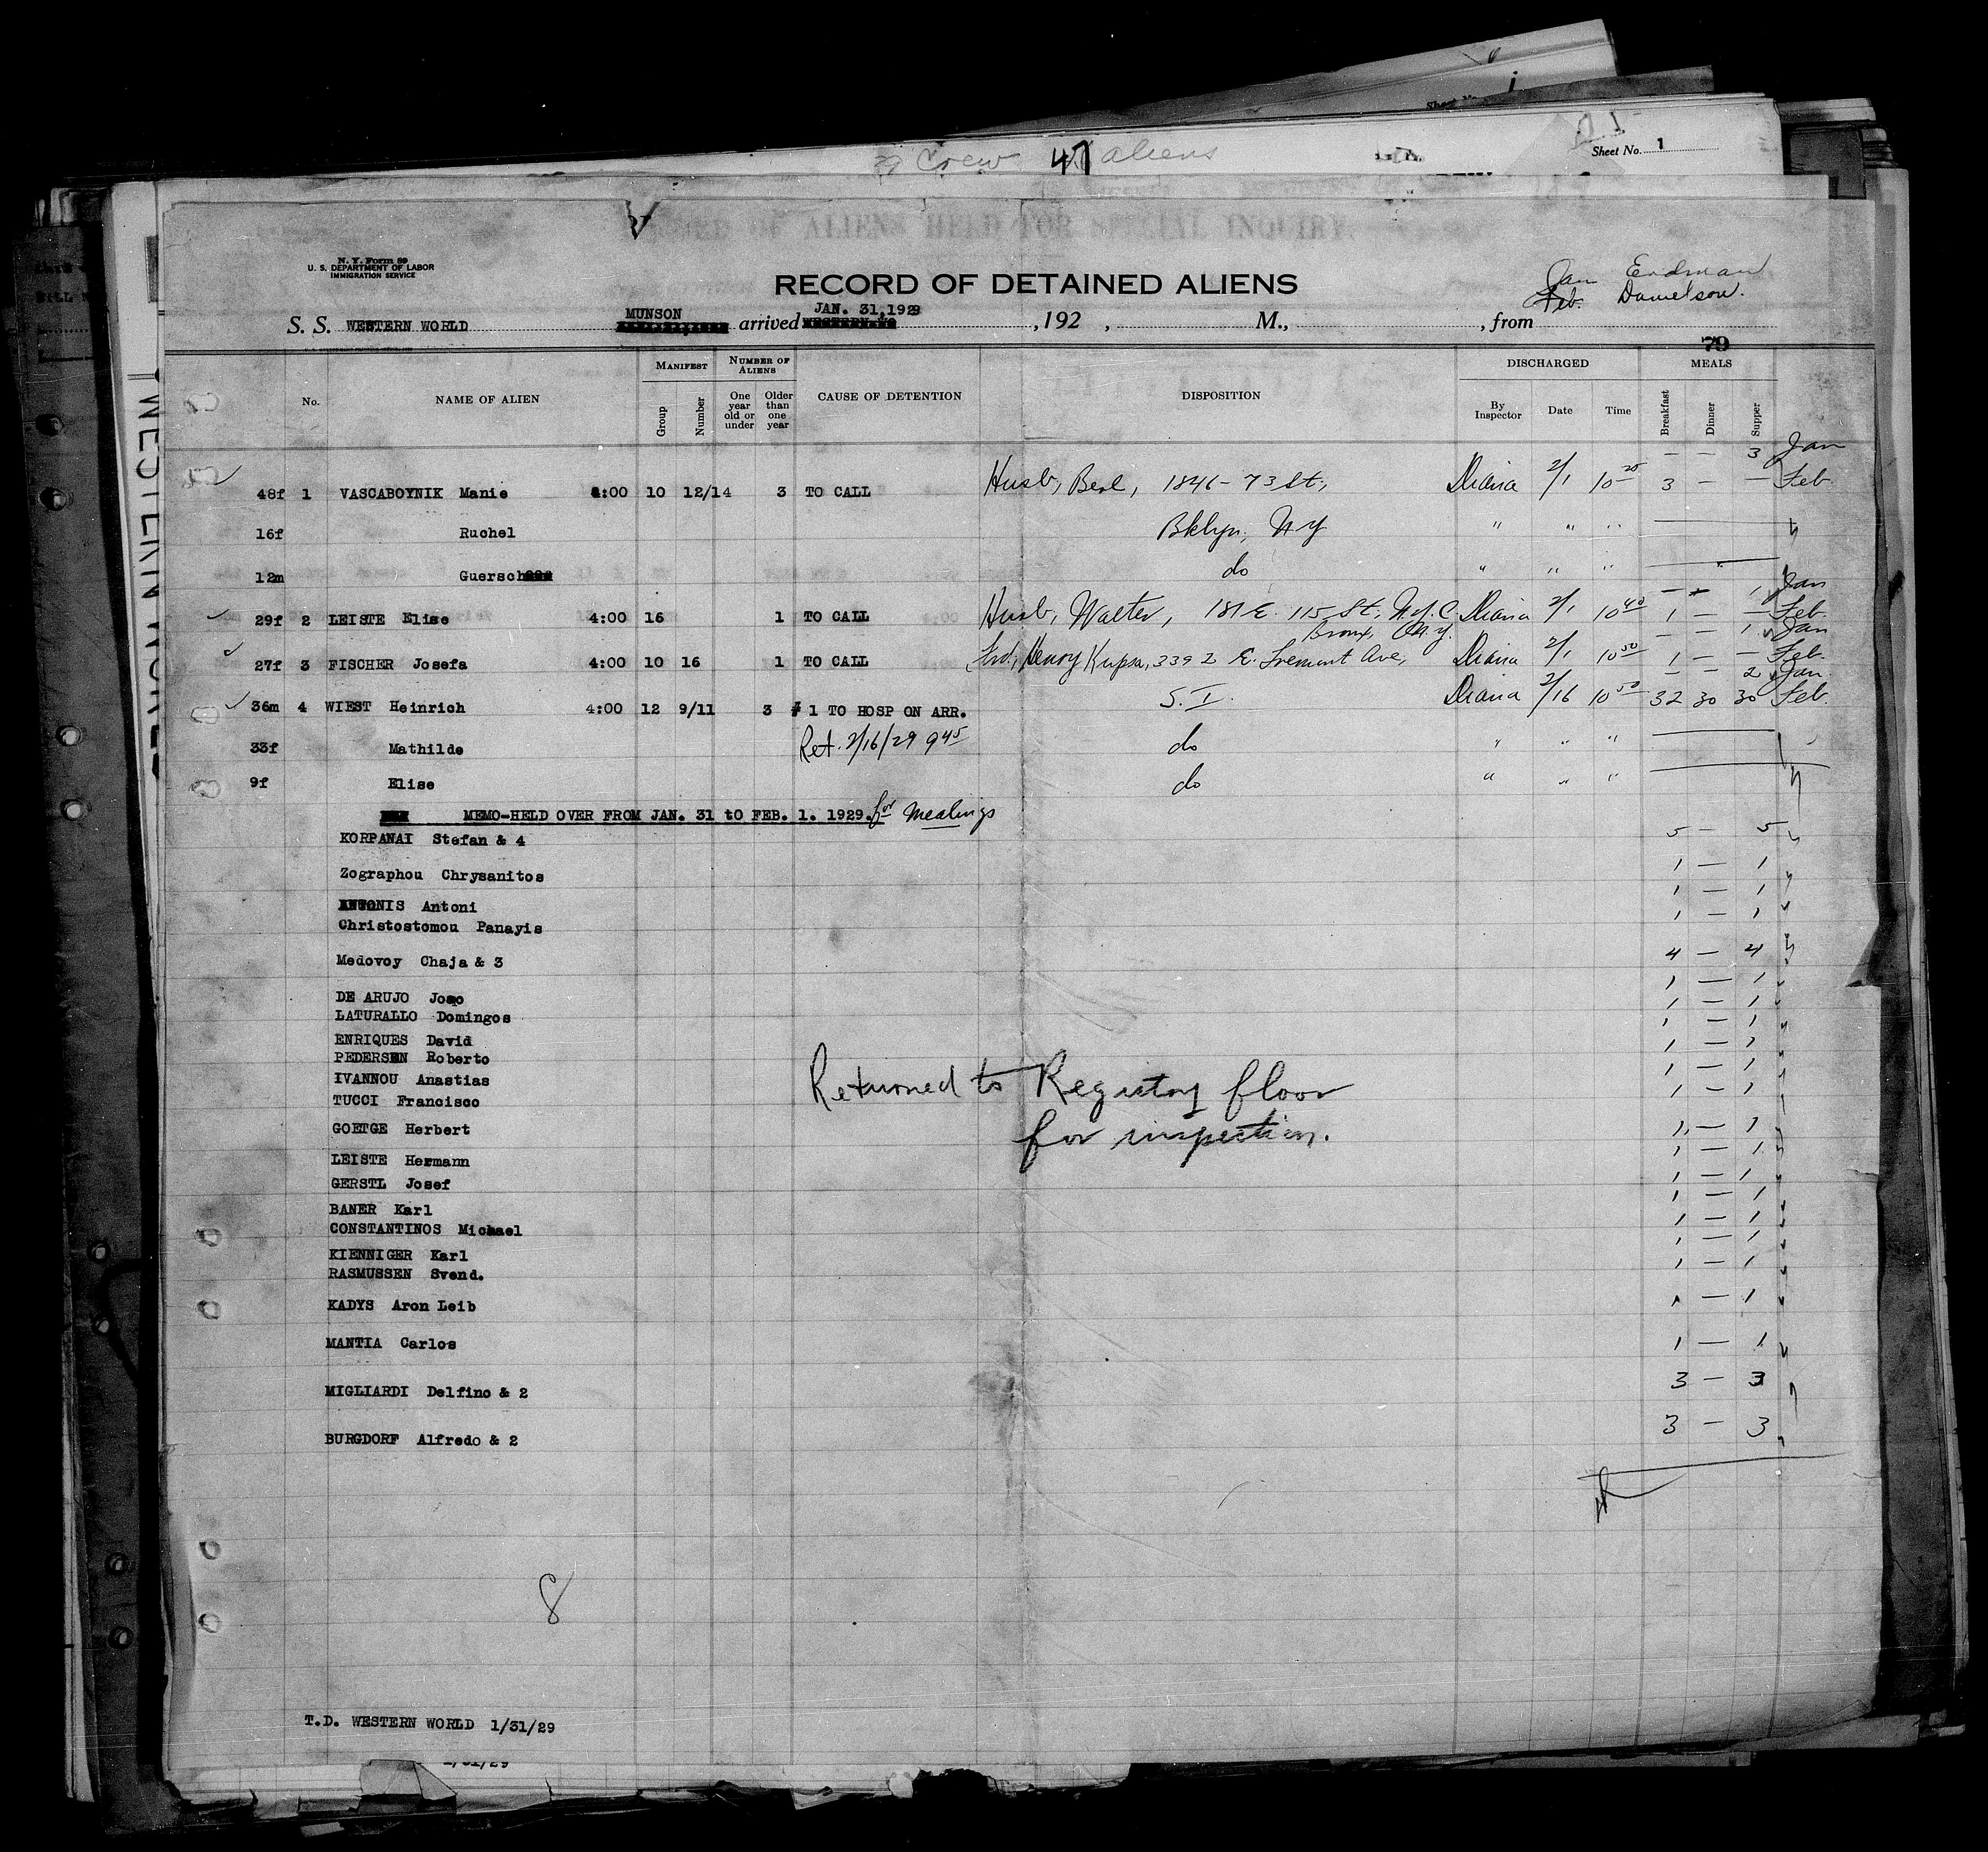 Crew 47 aliens
Sheet No. 1
RECORD OF ALIENS HELD FOR SPECIAL INQUIRY.
N. Y. Form 89
U. S. DEPARTMENT OF LABOR
IMMIGRATION SERVICE
RECORD OF DETAINED ALIENS
Jan Erdman
Feb. Danielson.
S. S. WESTERN WORLD MUNSON arrived JAN. 31, 1929 , 192 , M., , from
79
No. NAME OF ALIEN MANIFEST Group Number NUMBER OF ALIENS One year old or under Older than one year CAUSE OF DETENTION DISPOSITION DISCHARGED By Inspector Date Time MEALS Breakfast Dinner Supper
— — 3 Jan
48f 1 VASCABOYNIK Manie 4:00 10 12/14 3 TO CALL Husb, Berl, 1846 - 73 St., Diana 2/1 10 25 3 — — Feb.
16f Ruchel Bklyn, NY " " "
12m Guersch do " " "
— — 1 Jan
29f 2 LEISTE Elise 4:00 16 1 TO CALL Husb, Walter, 181 E. 115 St, N.Y.C. Diana 2/1 10 40 1 — — Feb.
Bronx, N.Y. — — 1 Jan
27f 3 FISCHER Josefa 4:00 10 16 1 TO CALL Frd, Henry Kupsa, 3392 E. Tremont Ave, Diana 2/1 10 50 1 — — Feb.
— — 2 Jan.
36m 4 WIEST Heinrich 4:00 12 9/11 3 1 TO HOSP ON ARR. S. I. Diana 2/16 10 50 32 30 30 Feb.
33f Mathilde Ret. 2/16/29 9 45 do " " "
9f Elise do " " "
MEMO-HELD OVER FROM JAN. 31 tO FEB. 1. 1929. for Mealings
KORPANAI Stefan & 4 5 — 5
Zographou Chrysanitos 1 — 1
ANTONIS Antoni 1 — 1
Christostomou Panayis 1 — 1
Medovoy Chaja & 3 4 — 4
DE ARUJO Joao 1 — 1
LATURALLO Domingos 1 — 1
ENRIQUES David 1 — 1
PEDERSEN Roberto 1 — 1
IVANNOU Anastias 1 — 1
TUCCI Francisco 1 — 1
Returned to Registry floor
for inspection.
GOETGE Herbert 1 — 1
LEISTE Hermann 1 — 1
GERSTL Josef 1 — 1
BANER Karl 1 — 1
CONSTANTINOS Michael 1 — 1
KIENNIGER Karl 1 — 1
RASMUSSEN Svend. 1 — 1
KADYS Aron Leib 1 — 1
MANTIA Carlos 1 — 1
MIGLIARDI Delfino & 2 3 — 3
BURGDORF Alfredo & 2 3 — 3
8
T.D. WESTERN WORLD 1/31/29
1/31/29
WESTERN WORLD